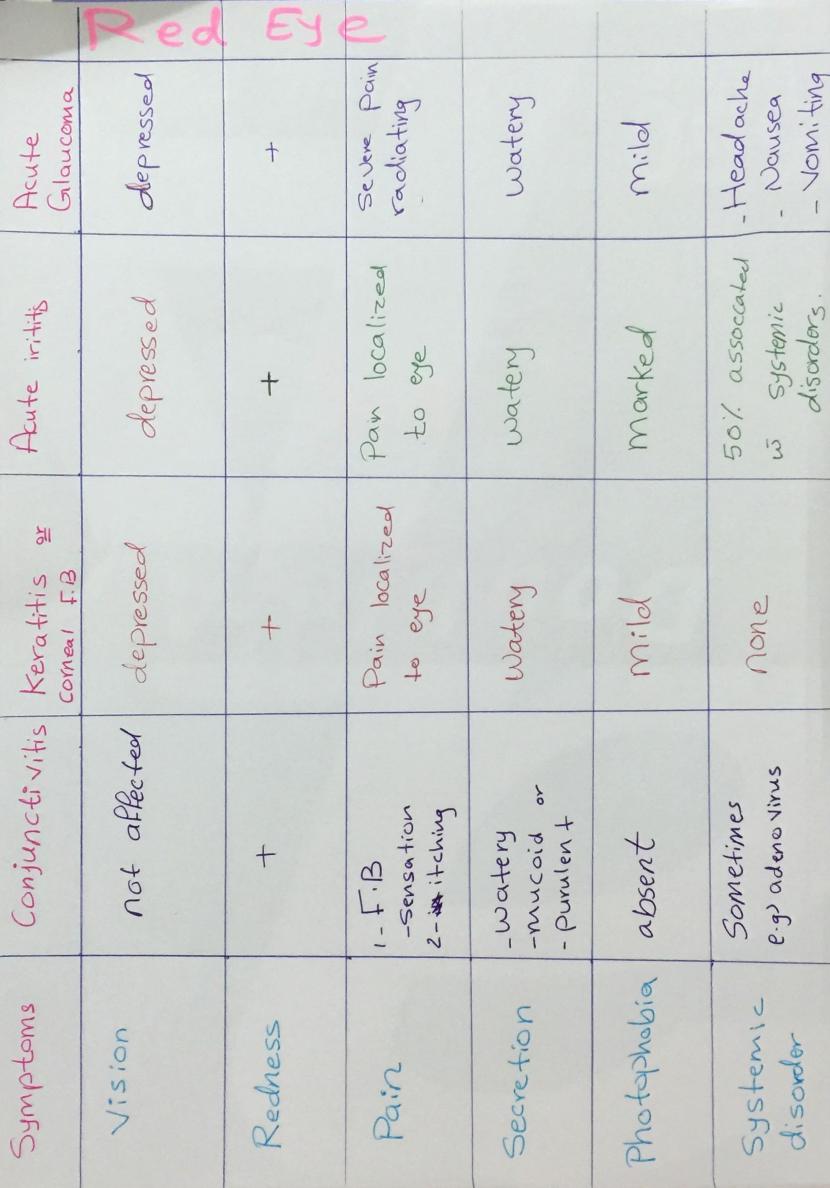 Red Eye
Symptoms
Conjunctivitis
Keratitis or
corneal F.B
Acute iritits
Acute
Glaucoma
Vision
not affected
depressed
depressed
depressed
Redness
+
+
+
+
Pain
1- F.B
-sensation
2- itching
Pain localized
to eye
Pan localized
to eye
Severe pain
radiating
Secretion
-Watery
-mucoid or
- purulent
Watery
Watery
Watery
Photophobia
absent
Mild
Marked
Mild
Systemic
disorder
Sometimes
e.g) adenovirus
none
50% assoccated
w̄ systemic
disorders.
-Headache
- Nausea
- Vomiting